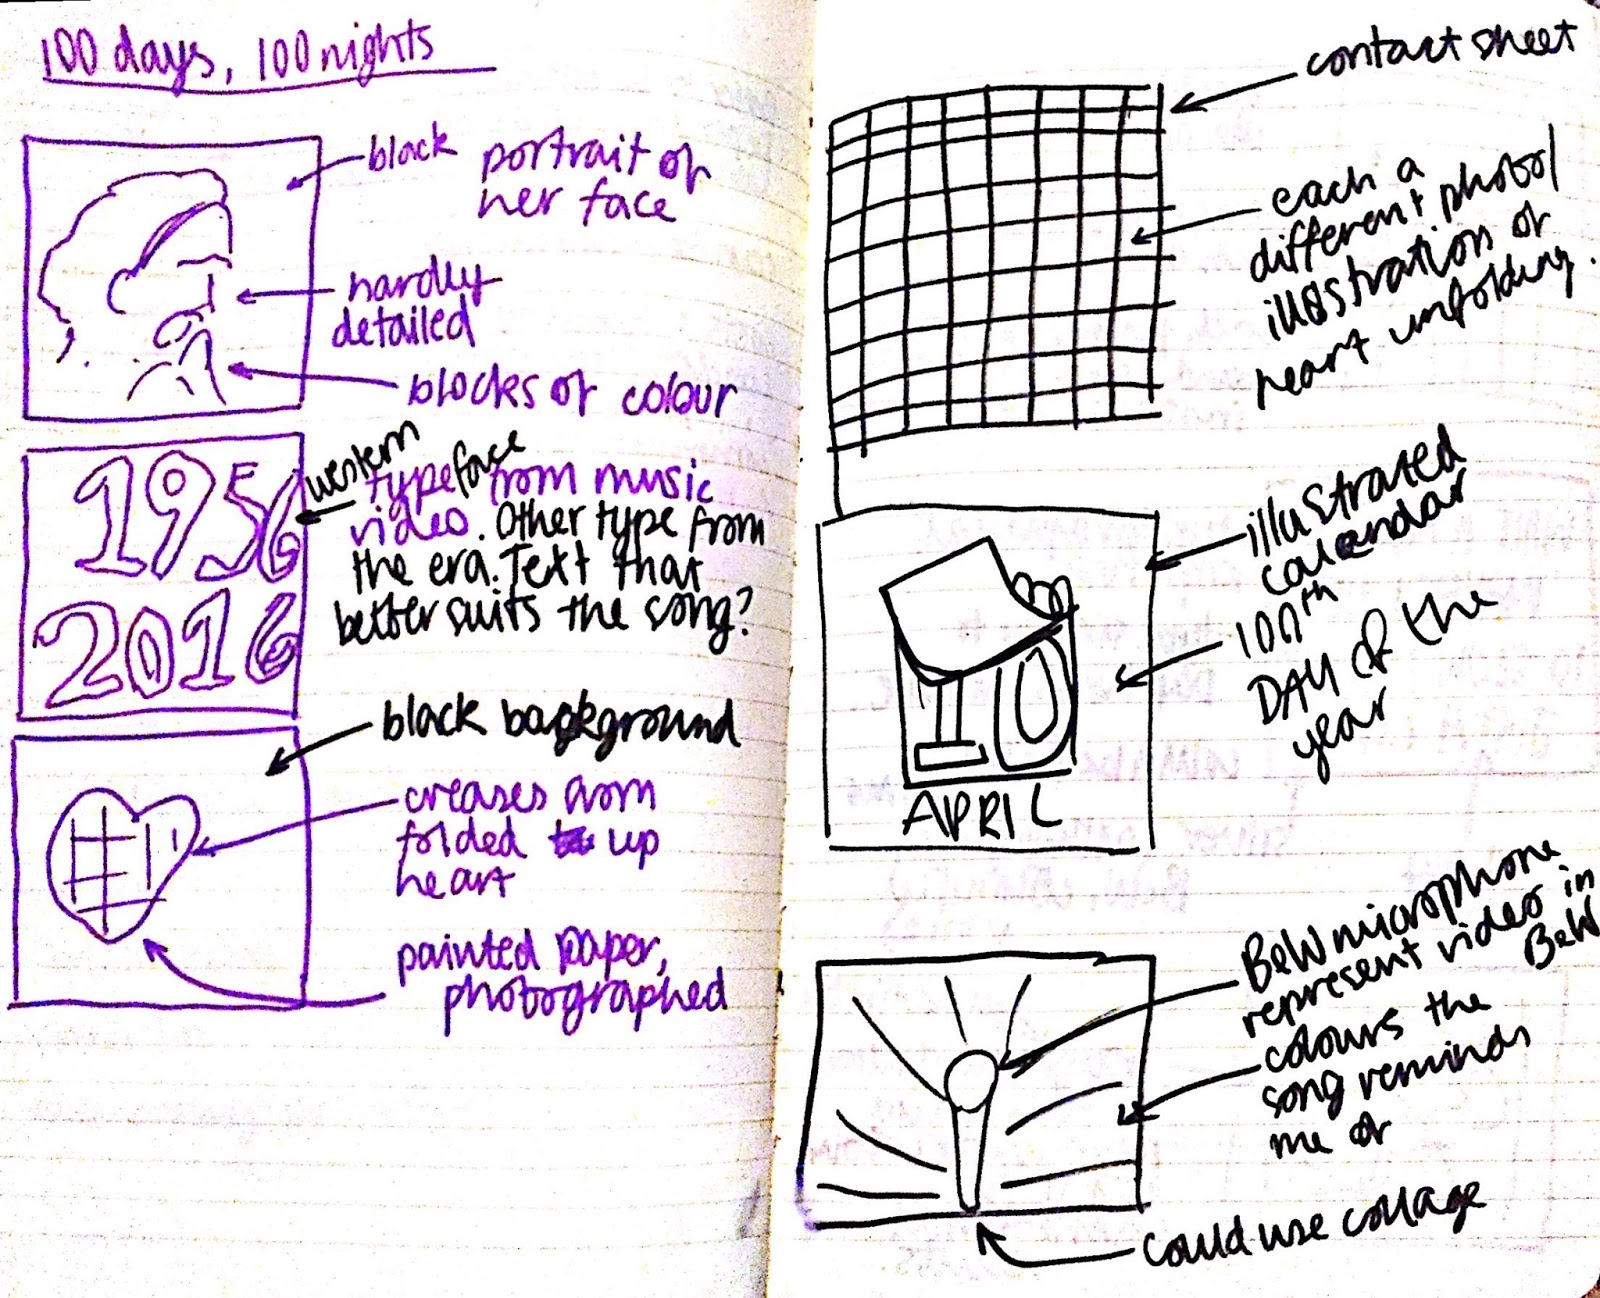 100 days, 100 nights
black
portrait of
her face
hardly
detailed
blocks of colour
1956
2016
western
typeface from music
video. Other type from
the era. Text that
better suits the song?
black background
creases from
folded up
heart
painted paper,
photographed
contact sheet
each a
different photo/
illustration of
heart unfolding.
illustrated
calendar
100th
DAY of the
year
10
APRIL
B&W microphone
represent video in
B&W
colours the
song reminds
me of
could use collage